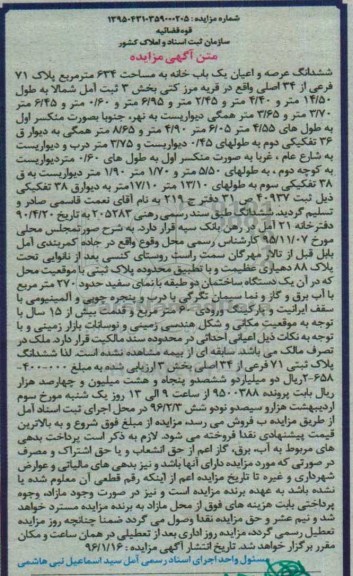 شماره مزایده : ۱۳۹۵۰۴۳۱۰۳۵۹۰۰۰۲۰۵
قوه قضائیه
سازمان ثبت اسناد و املاک کشور
متن آگهی مزایده
ششدانگ عرصه و اعیان یک باب خانه به مساحت ۶۳۴ مترمربع پلاک ۷۱
فرعی از ۳۴ اصلی واقع در قریه مرز کتی بخش ۳ ثبت آمل شمالا به طول
۱۴/۵۰ متر و ۴/۴۰ متر و ۲/۴۵ متر و ۶/۹۵ متر و ۰/۶۰ متر و ۶/۴۵ متر و
۳/۷۰ متر و ۳/۶۵ متر همگی دیواریست به نهر، جنوبا بصورت منکسر اول
به طول های ۴/۵۵ متر ۶/۰۵ متر ۴/۹۰ متر و ۸/۶۵ متر همگی به دیوار ق
۳۶ تفکیکی دوم به طولهای ۰/۴۵ دیواریست و ۳/۷۵ متر درب و دیواریست
به شارع عام ، غربا به صورت منکسر اول به طول های ۰/۶۰ متردیواریست
به کوچه دوم ، به طولهای ۵/۵۰ متر و ۱/۷۰ متر ۱/۹۰ متر دیواریست به ق
۳۸ تفکیکی سوم به طولهای ۱۳/۱۰ متر ۱۷/۱۰متر به دیوارق ۳۸ تفکیکی
ذیل ثبت ۲۰۹۳۷ ص ۱۲ دفتر ج ۲۱۹ به نام آقای نعمت قاسمی صادر و
تسلیم گردید. ششدانگ طبق سند رسمی رهنی ۲۰۵۲۸۳ به تاریخ ۹۰/۴/۲۰
دفترخانه ۲۱ آمل در رهن بانک سپه قرار دارد. به شرح صورتمجلس محلی
مورخ ۹۵/۱۱/۰۷ کارشناس رسمی محل وقوع واقع در جاده کمربندی آمل
بابل قبل از تالار مهرگان سمت راست روستای کنسی بعد از نانوایی تخت
پلاک ۸۸ دهیاری عظیمت و با تطبیق محدوده پلاک ثبتی با موقعیت محل
که در آن یک دستگاه ساختمان دو طبقه با نمای سفید حدود ۲۷۰ متر مربع
با آب برق و گاز و نما سیمان تگرگی با درب و پنجره چوبی و آلمینیومی با
سقف ایرانیت و پارکینگ ورودی ۶۰ متر مربع و قدمت بیش از ۱۵ سال با
توجه به موقعیت مکانی و شکل هندسی زمینی و نوسانات بازار زمینی و با
توجه به نکات ذیل اعیانی احداثی در محدوده سند مالکیت قرار دارد. ملک در
تصرف مالک می باشد. سابقه ای از بیمه مشاهده نشده است. لذا ششدانگ
پلاک ثبتی ۷۱ فرعی از ۳۴ اصلی بخش ۳ ارزیابی شده به مبلغ ۴۰۰۰۰۰-
۲-۶۵۸ریال دو میلیاردو ششصدو پنجاه و هشت میلیون و چهارصد هزار
ریال بابت پرونده ۹۵۰۰۳۸۸ از ساعت ۹ الی ۱۳ روز یک شنبه مورخ سوم
اردیبهشت هزارو سیصدو نودو شش ۹۶/۲/۳ در محل اجرای ثبت اسناد آمل
از طریق مزایده ب فروش می رسد. مزایده از مبلغ فوق شروع و به بالاترین
قیمت پیشنهادی نقدا فروخته می شود. لازم به ذکر است پرداخت بدهی
های مربوط به آب، برق، گاز اعم از حق انشعاب و یا حق اشتراک و مصرف
در صورتی که مورد مزایده دارای آنها باشد و نیز بدهی های مالیاتی و عوارض
شهرداری و غیره تا تاریخ مزایده اعم از اینکه رقم قطعی آن معلوم شده یا
نشده باشد به عهده برنده مزایده است و نیز در صورت وجود مازاد، وجوه
پرداختی بابت هزینه های فوق از محل مازاد به برنده مزایده مسترد خواهد
شد و نیم عشر و حق مزایده نقدا وصول می گردد ضمنا چنانچه روز مزایده
تعطیل رسمی گردد، مزایده روز اداری بعد از تعطیلی در همان ساعت و مکان
مقرر برگزار خواهد شد. تاریخ انتشار آگهی مزایده : ۹۶/۱/۱۶
مسئول واحد اجرای اسناد رسمی آمل سید اسماعیل نبی هاشمی